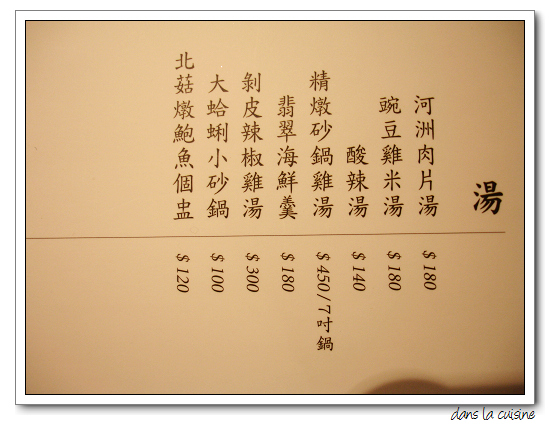 湯
河洲肉片湯 $180
豌豆雞米湯 $180
酸辣湯 $140
精燉砂鍋雞湯 $450/7吋鍋
翡翠海鮮羹 $180
剝皮辣椒雞湯 $300
大蛤蜊小砂鍋 $100
北菇燉鮑魚個盅 $120
dans la cuisine